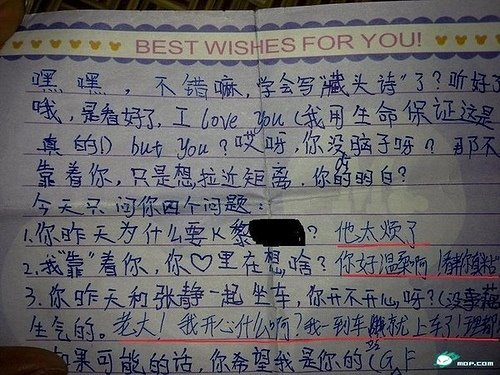 BEST WISHES FOR YOU!
嘿嘿，不错嘛，学会写"藏头诗"了？听好了
哦，是看好了，I love you（我用生命保证这是
真的!）but you？哎呀，你没脑子呀？那不
靠着你，只是想拉近距离，你的明白？
今天只问你四个问题：
1.你昨天为什么要K黎 ？ 他太烦了
2.我"靠"着你，你♡里在想啥？ 你好温柔啊
3.你昨天和张静一起坐车，你开不开心呀？（没事
生气的。老大！我开心什么啊？我一到车 就上车了！理都
如果可能的话，你希望我是你的（G F
MOP.COM